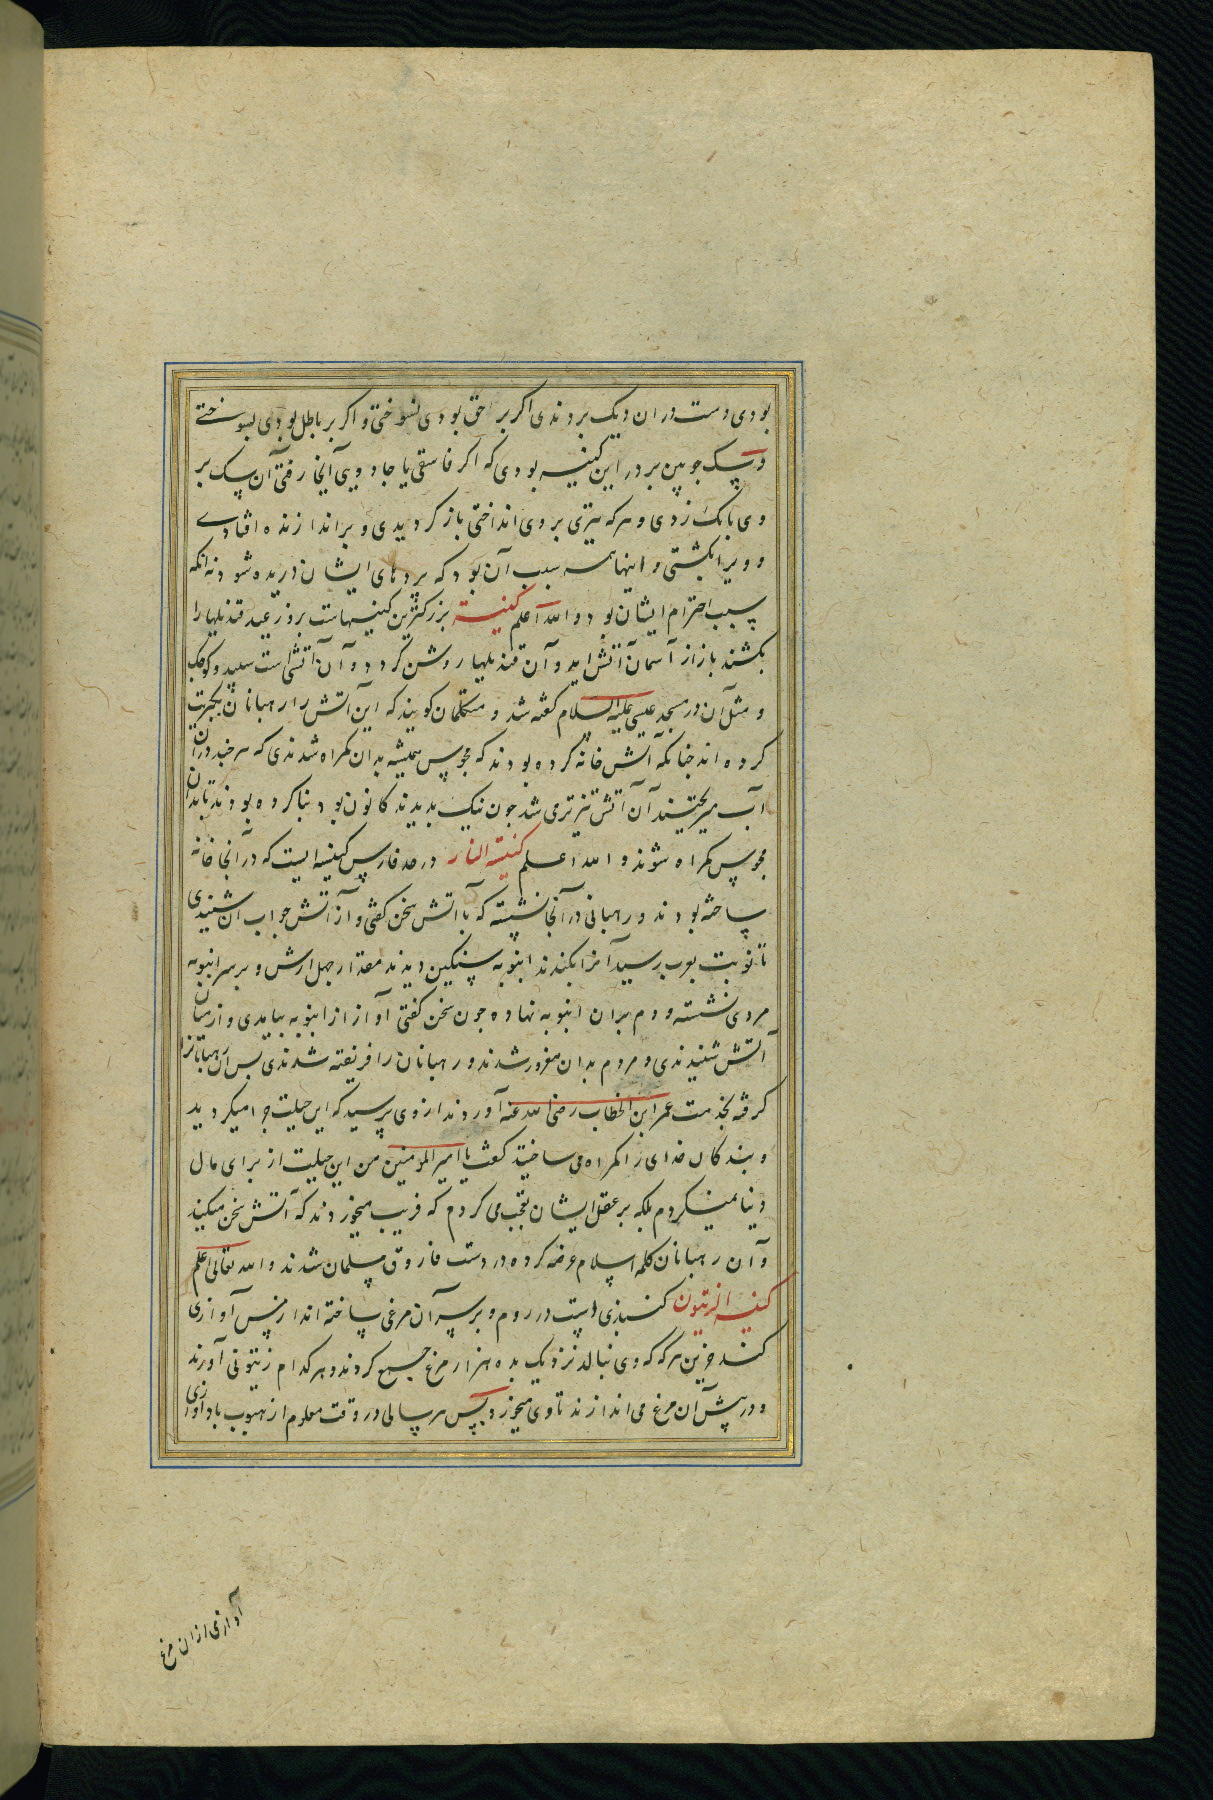 بودی دست دران دیک بردندی اکر بر حق بودی نسوختی و اکر بر باطل بودی بسوختے
و سک جوبین بر در این کنیسه بودی که اکر فاسقی یا جادویی آنجا رفتی آن سک بر
وی بانک زدی و هر که تیری بر وی انداختی باز کردیدی و بر اندازنده افتادے
و ویرا بکشتی و اینها همه سبب آن بود که پردهای ایشان دریده شود نه انکه
سبب احترام ایشان بود والله اعلم کنیسة بزرکترین کنیسهاست بروز عید قندیلها را
بکشند باز از آسمان آتش اید و آن قندیلها روشن کردد و آن آتشی است سپید و کوجک
و مثل آن در مسجد عیسی علیه السلام کفته شد و متکلمان کویند که این آتش را رهبانان
کرده اند جنانکه آتش خانه کرده بودند که مجوس همیشه بدان کمراه شدندی که هر جند دران
آب میریختند آن آتش تیزتر می شد جون نیک بدیدند کانون بود بنا کرده بودند تا بدان
مجوس کمراه شوند و الله اعلم کنیسة النار در حد فارس کنیسه ایست که در آنجا خانه
ساخته بودند و رهبانی در آنجا نشسته که با آتش سخن کفتی و از آتش جواب آن شنیدی
تا نوبت بعرب رسید آنرا بکندند انبوبه سنکین دیدند مقدار جهل ارش و بر سر انبوبه
مردی نشسته و دم بران انبوبه نهاده جون سخن کفتی آواز از انبوبه بیامدی و از میان
آتش شنیدندی و مردم بدان مغرور شدند و رهبانان را فریفته شدندی بس آن رهبانانرا
کرفته بخدمت عمر ابن الخطاب رضی الله عنه آوردند از وی پرسید که این حیلت جرا میکردید
و بندکان خدای را کمراه می ساختید کفت یا امیر المؤمنین من این حیلت از برای مال
دنیا نمیکردم بلکه بر عقل ایشان تعجب می کردم که فریب میخوردند که آتش سخن میکند
و آن رهبانان کلمه اسلام عرضه کرده در دست فاروق مسلمان شدند والله تعالی اعلم
کنیسه الزیتون کنبذی است در روم و بر سر آن مرغی ساخته اند از مس آوازی
کند حزین هرکه که وی بنالد نزدیک بده هزار مرغ جمع کردند و هر کدام زیتونی آورند
و در پیش آن مرغ می اندازند تا وی میخورد بس هر سالی در وقت معلوم از هبوب باد آوازی
آوازی از ان مرغ